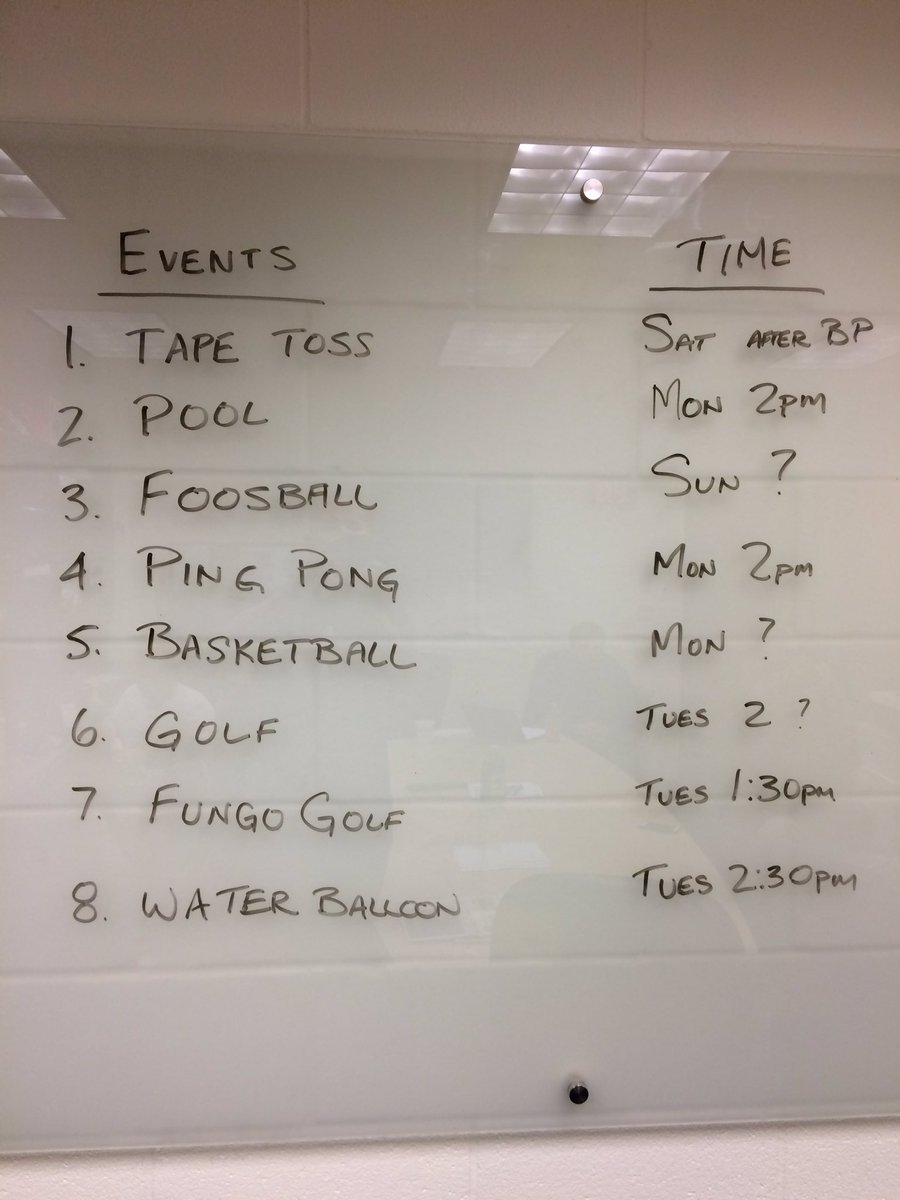 EVENTS TIME
1. TAPE TOSS SAT AFTER BP
2. POOL MON 2PM
3. FOOSBALL SUN ?
4. PING PONG MON 2PM
5. BASKETBALL MON ?
6. GOLF TUES 2 ?
7. FUNGO GOLF TUES 1:30PM
8. WATER BALLOON TUES 2:30PM